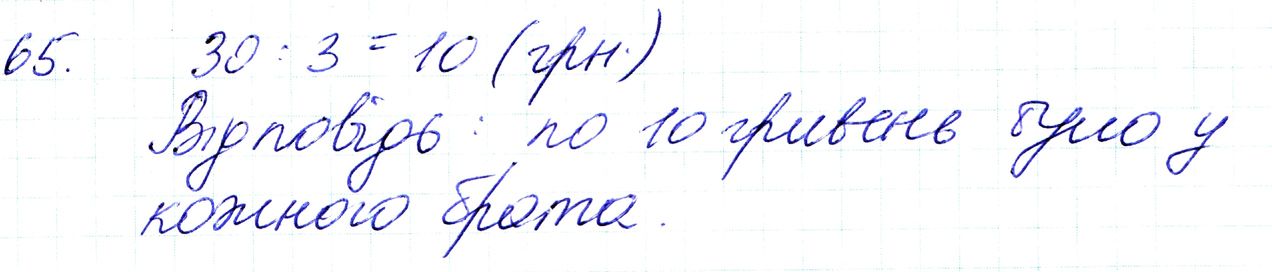 65. 30 : 3 = 10 (грн.)
Відповідь: по 10 гривень було у
кожного брата.